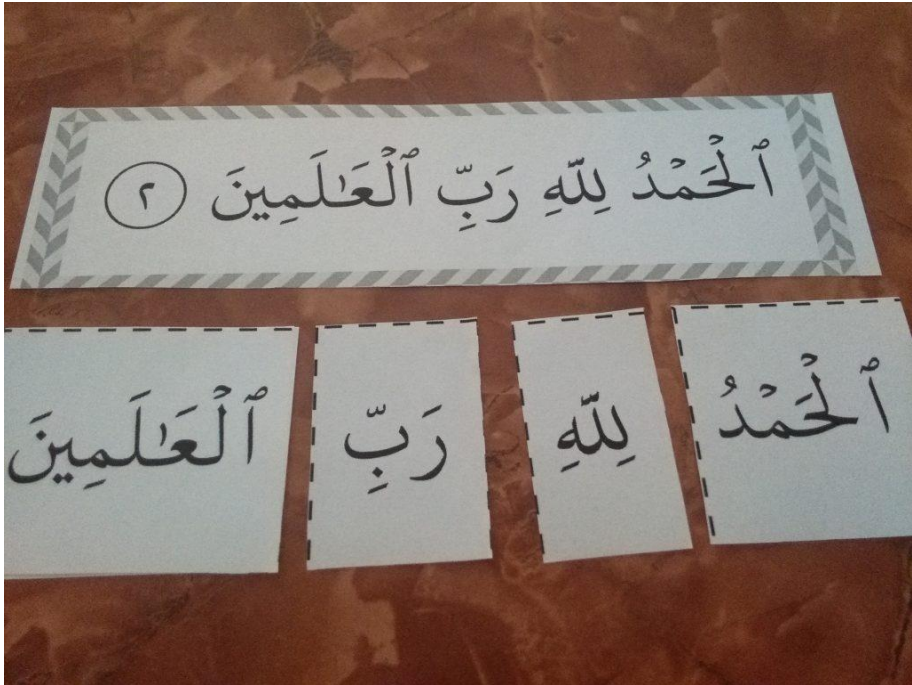 ٱلۡحَمۡدُ لِلَّهِ رَبِّ ٱلۡعَـٰلَمِينَ ٢
ٱلۡحَمۡدُ لِلَّهِ رَبِّ ٱلۡعَـٰلَمِينَ